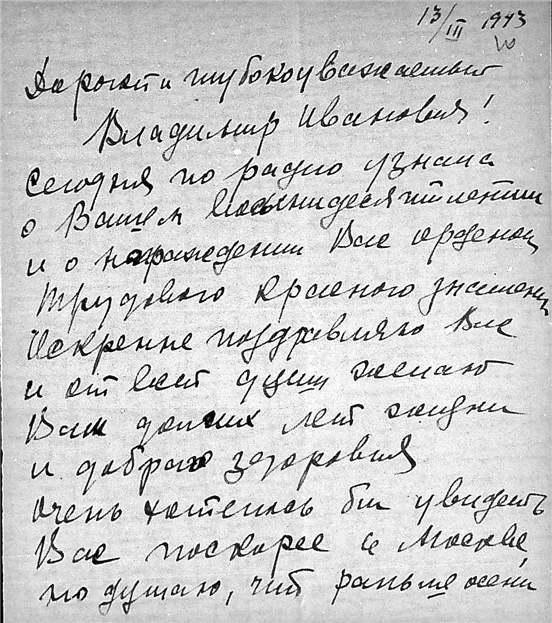 13/III 1943
Дорогой и глубокоуважаемый
Владимир Иванович!
Сегодня по радио узнала
о Вашем восьмидесятилетии
и о награждении Вас орденом
Трудового красного знамени
Искренне поздравляю Вас
и от всей души желаю
Вам долгих лет жизни
и доброго здоровия
очень хотелось бы увидеть
Вас поскорее в Москве,
но думаю, что раньше осени